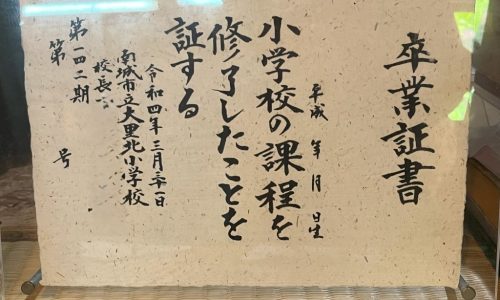 卒業証書
平成 年 月 日生
小学校の課程を
修了したことを
証する
令和四年三月二一日
南城市立大里北小学校
校長
第一四二期
第 号